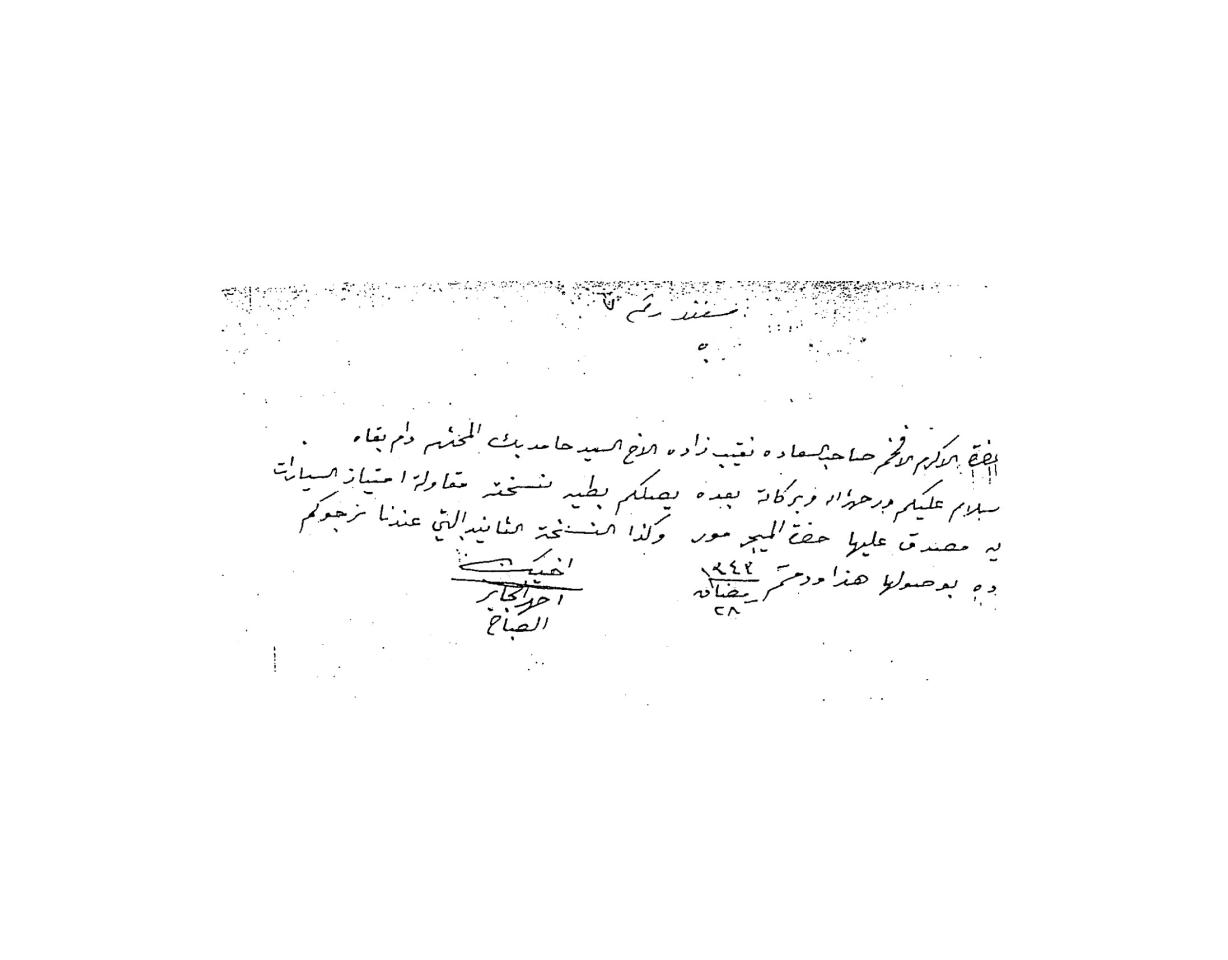 مستند رقم
حضرة الاكرم الافخم صاحب السعاده نقيب زاده الاخ السيد حامد بك المحترم دام بقاه
سلام عليكم ورحمة الله وبركاته بعده يصلكم بطيه نسخة مقاولة امتياز السيارات
مصدق عليها حضرة الميجر مور وكذا النسخة الثانيه التي عندنا نرجوكم
بوصولها هذا ودمتم ٢٨ رمضان ١٣٤٣
اخيك
احمد الجابر
الصباح